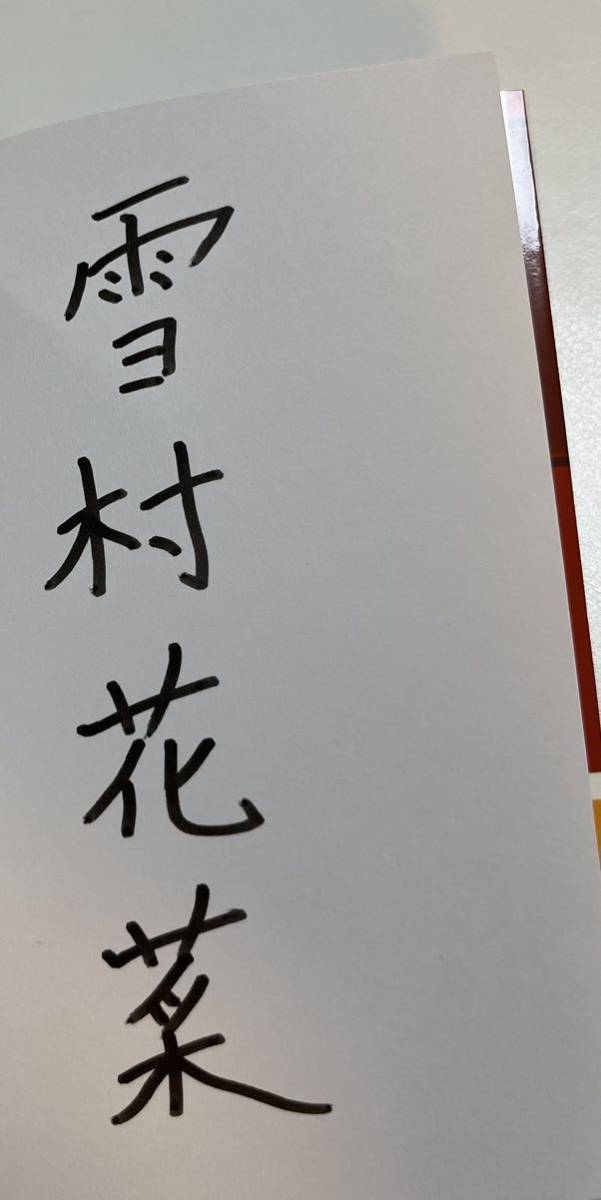 雪村花菜